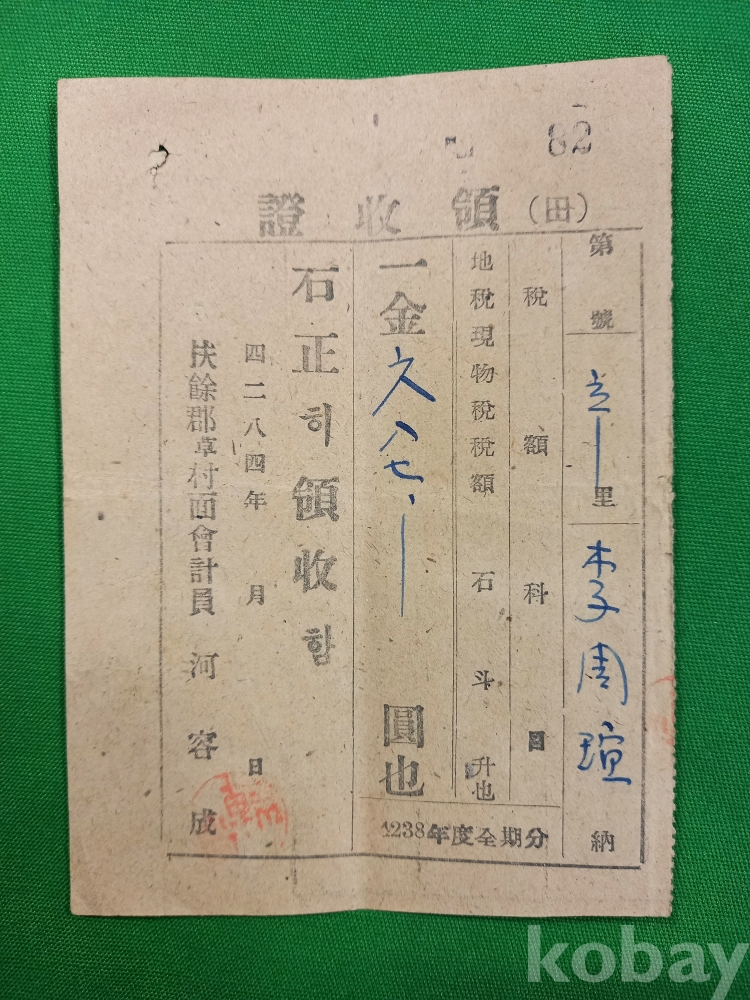 82
領收證 (田)
第 號
里 李周瑄 納
稅額 科目
地稅現物稅稅額 石 斗 升也
一金 六八七、 圓也
1238年度全期分
石正히領收함
四二八四年 月 日
扶餘郡草村面會計員 河容成
kobay